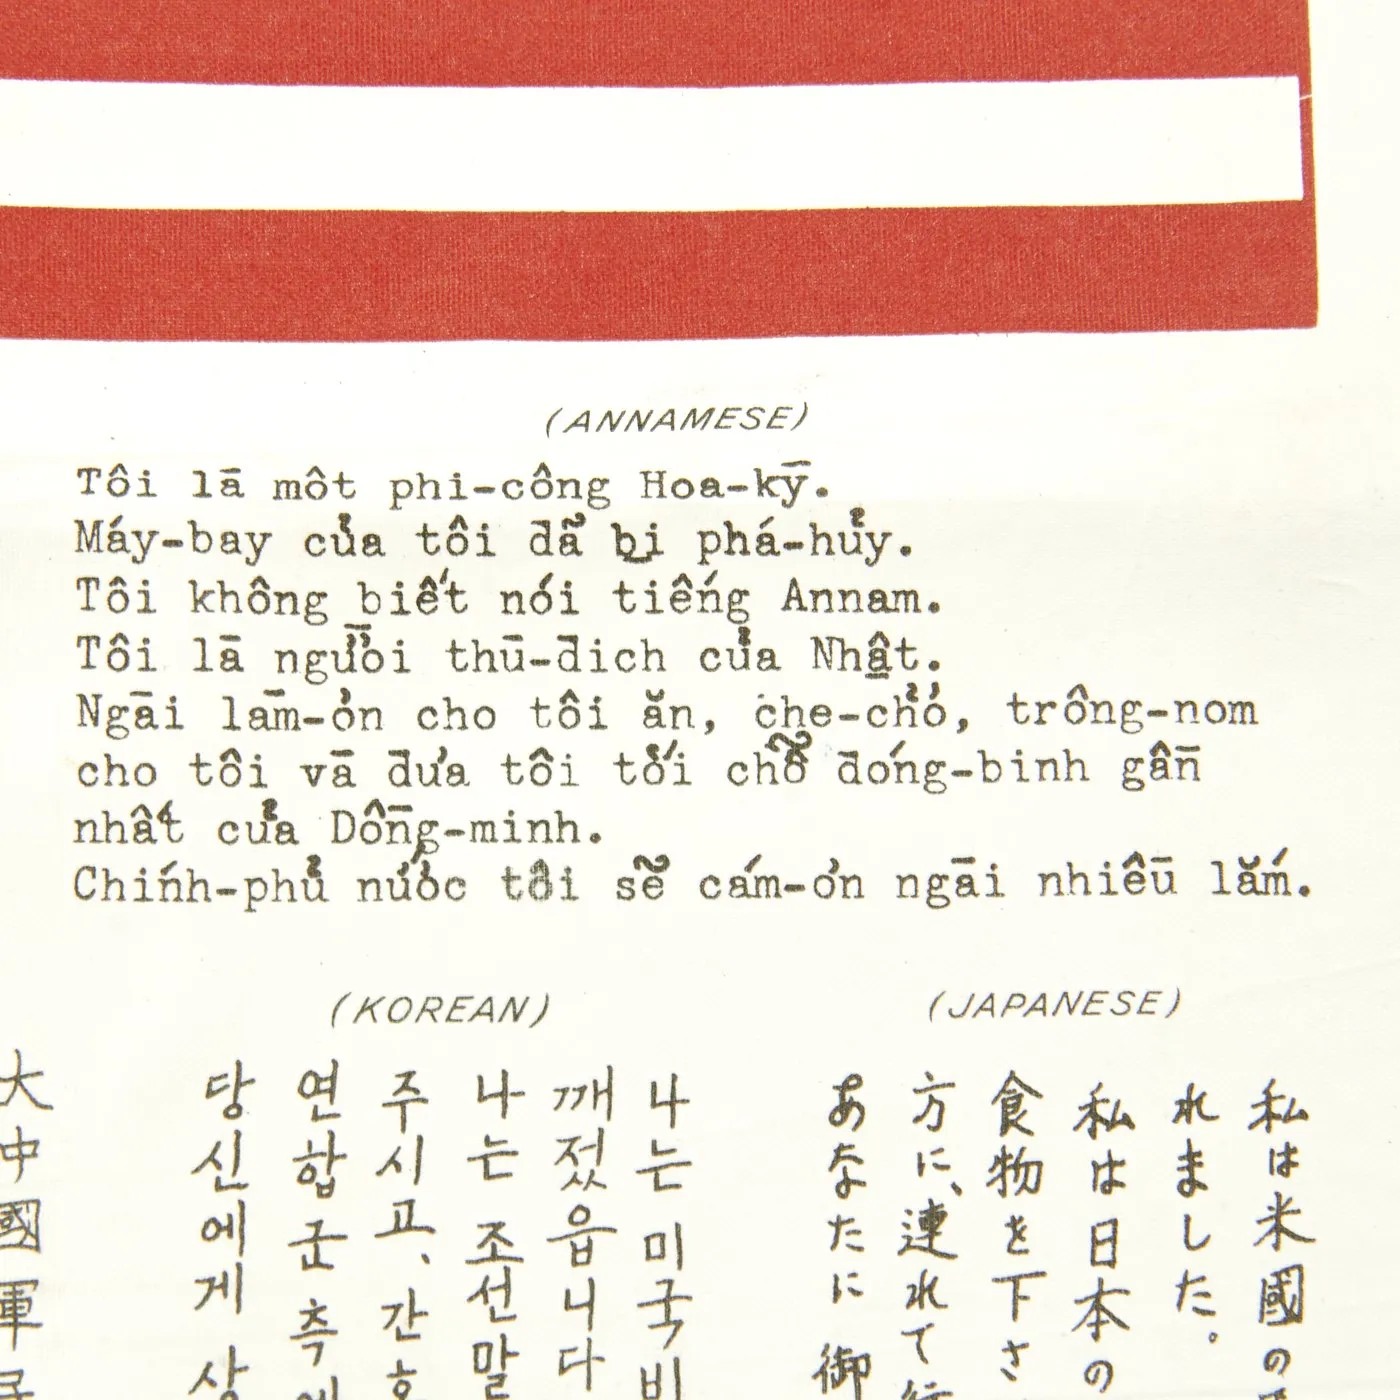 (ANNAMESE)
Tôi lā môt phi-công Hoa-kȳ.
Máy-bay của tôi đã bị phá-hủy.
Tôi không biết nói tiếng Annam.
Tôi lā người thū-đich của Nhật.
Ngāi lām-ơn cho tôi ăn, che-chở, trông-nom
cho tôi vā đưa tôi tới chỗ đóng-binh gần
nhất của Đồng-minh.
Chính-phủ nước tôi sẽ cám-ơn ngāi nhiêū lắm.
(KOREAN)
나는 미국 비
깨젔읍니다
나는 조선말
주시고、간호
연합군 측에
당신에게 상
(JAPANESE)
私は米國の
れました。
私は日本の
食物を下さ
方に、連れて行
あなたに 御
大中國軍